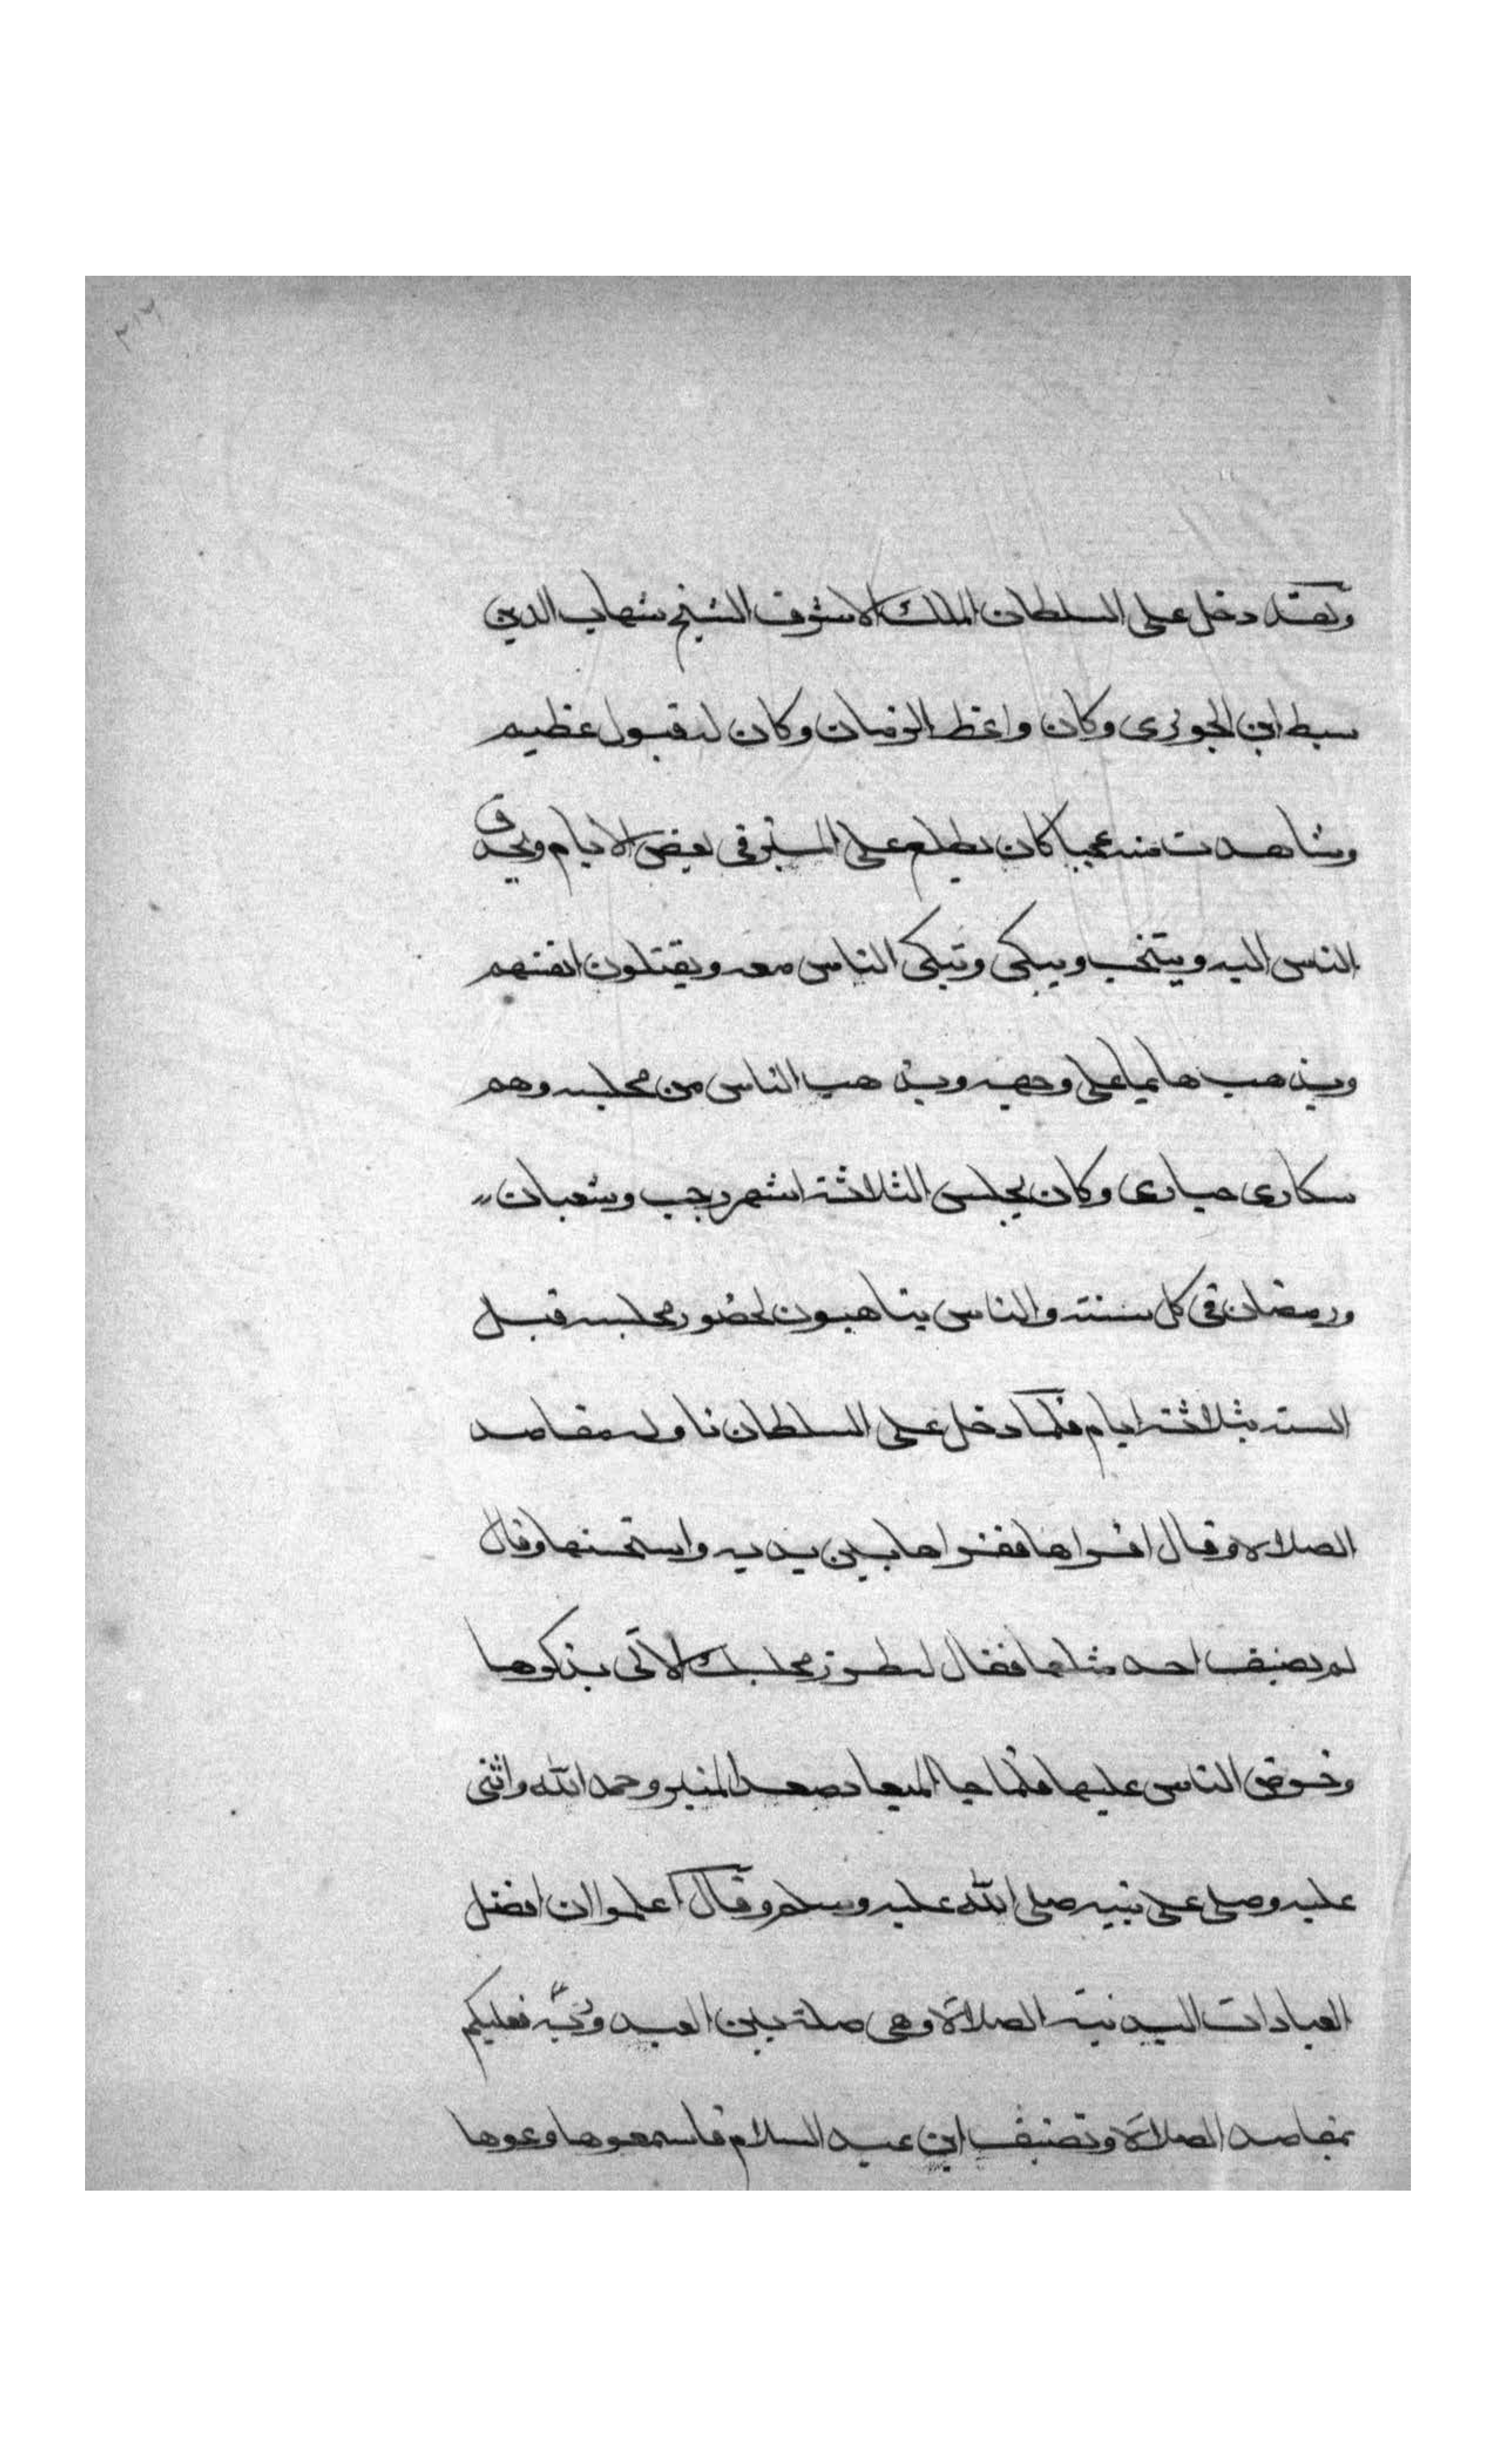 ٣١٦
وبعده دخل على السلطان الملك الاشرف الشيخ شهاب الدين
سبط ابن الجوزى وكان واعظ الزمان وكان له قبول عظيم
وشاهدت منه عجبا كان يطلع على المنبر فى بعض الايام ويحدق
الناس اليه وينتحب ويبكى وتبكى الناس معه ويقتلون انفسهم
ويذهب هايما على وجهه ويذهب الناس من مجلسه وهم
سكارى حيارى وكان يجلس الثلاثة اشهر رجب وشعبان
ورمضان فى كل سنة والناس يتاهبون لحضور مجلسه قبل
السبت بثلاثة ايام فلما دخل على السلطان ناوله مقاصد
الصلاة وقال اقراها فقراها بين يديه واستحسنها وقال
لم يصنف احد مثلها فقال له طرز مجلسك الاتى بذكرها
وحرض الناس عليها فلما جا الميعاد صعد المنبر وحمد الله واثنى
عليه وصلى على نبيه صلى الله عليه وسلم وقال اعلموا ان افضل
العبادات البدنية الصلاة وهى صلة بين العبد وربه فعليكم
بمقاصد الصلاة وتصنيف ابن عبد السلام فاسمعوها وعوها